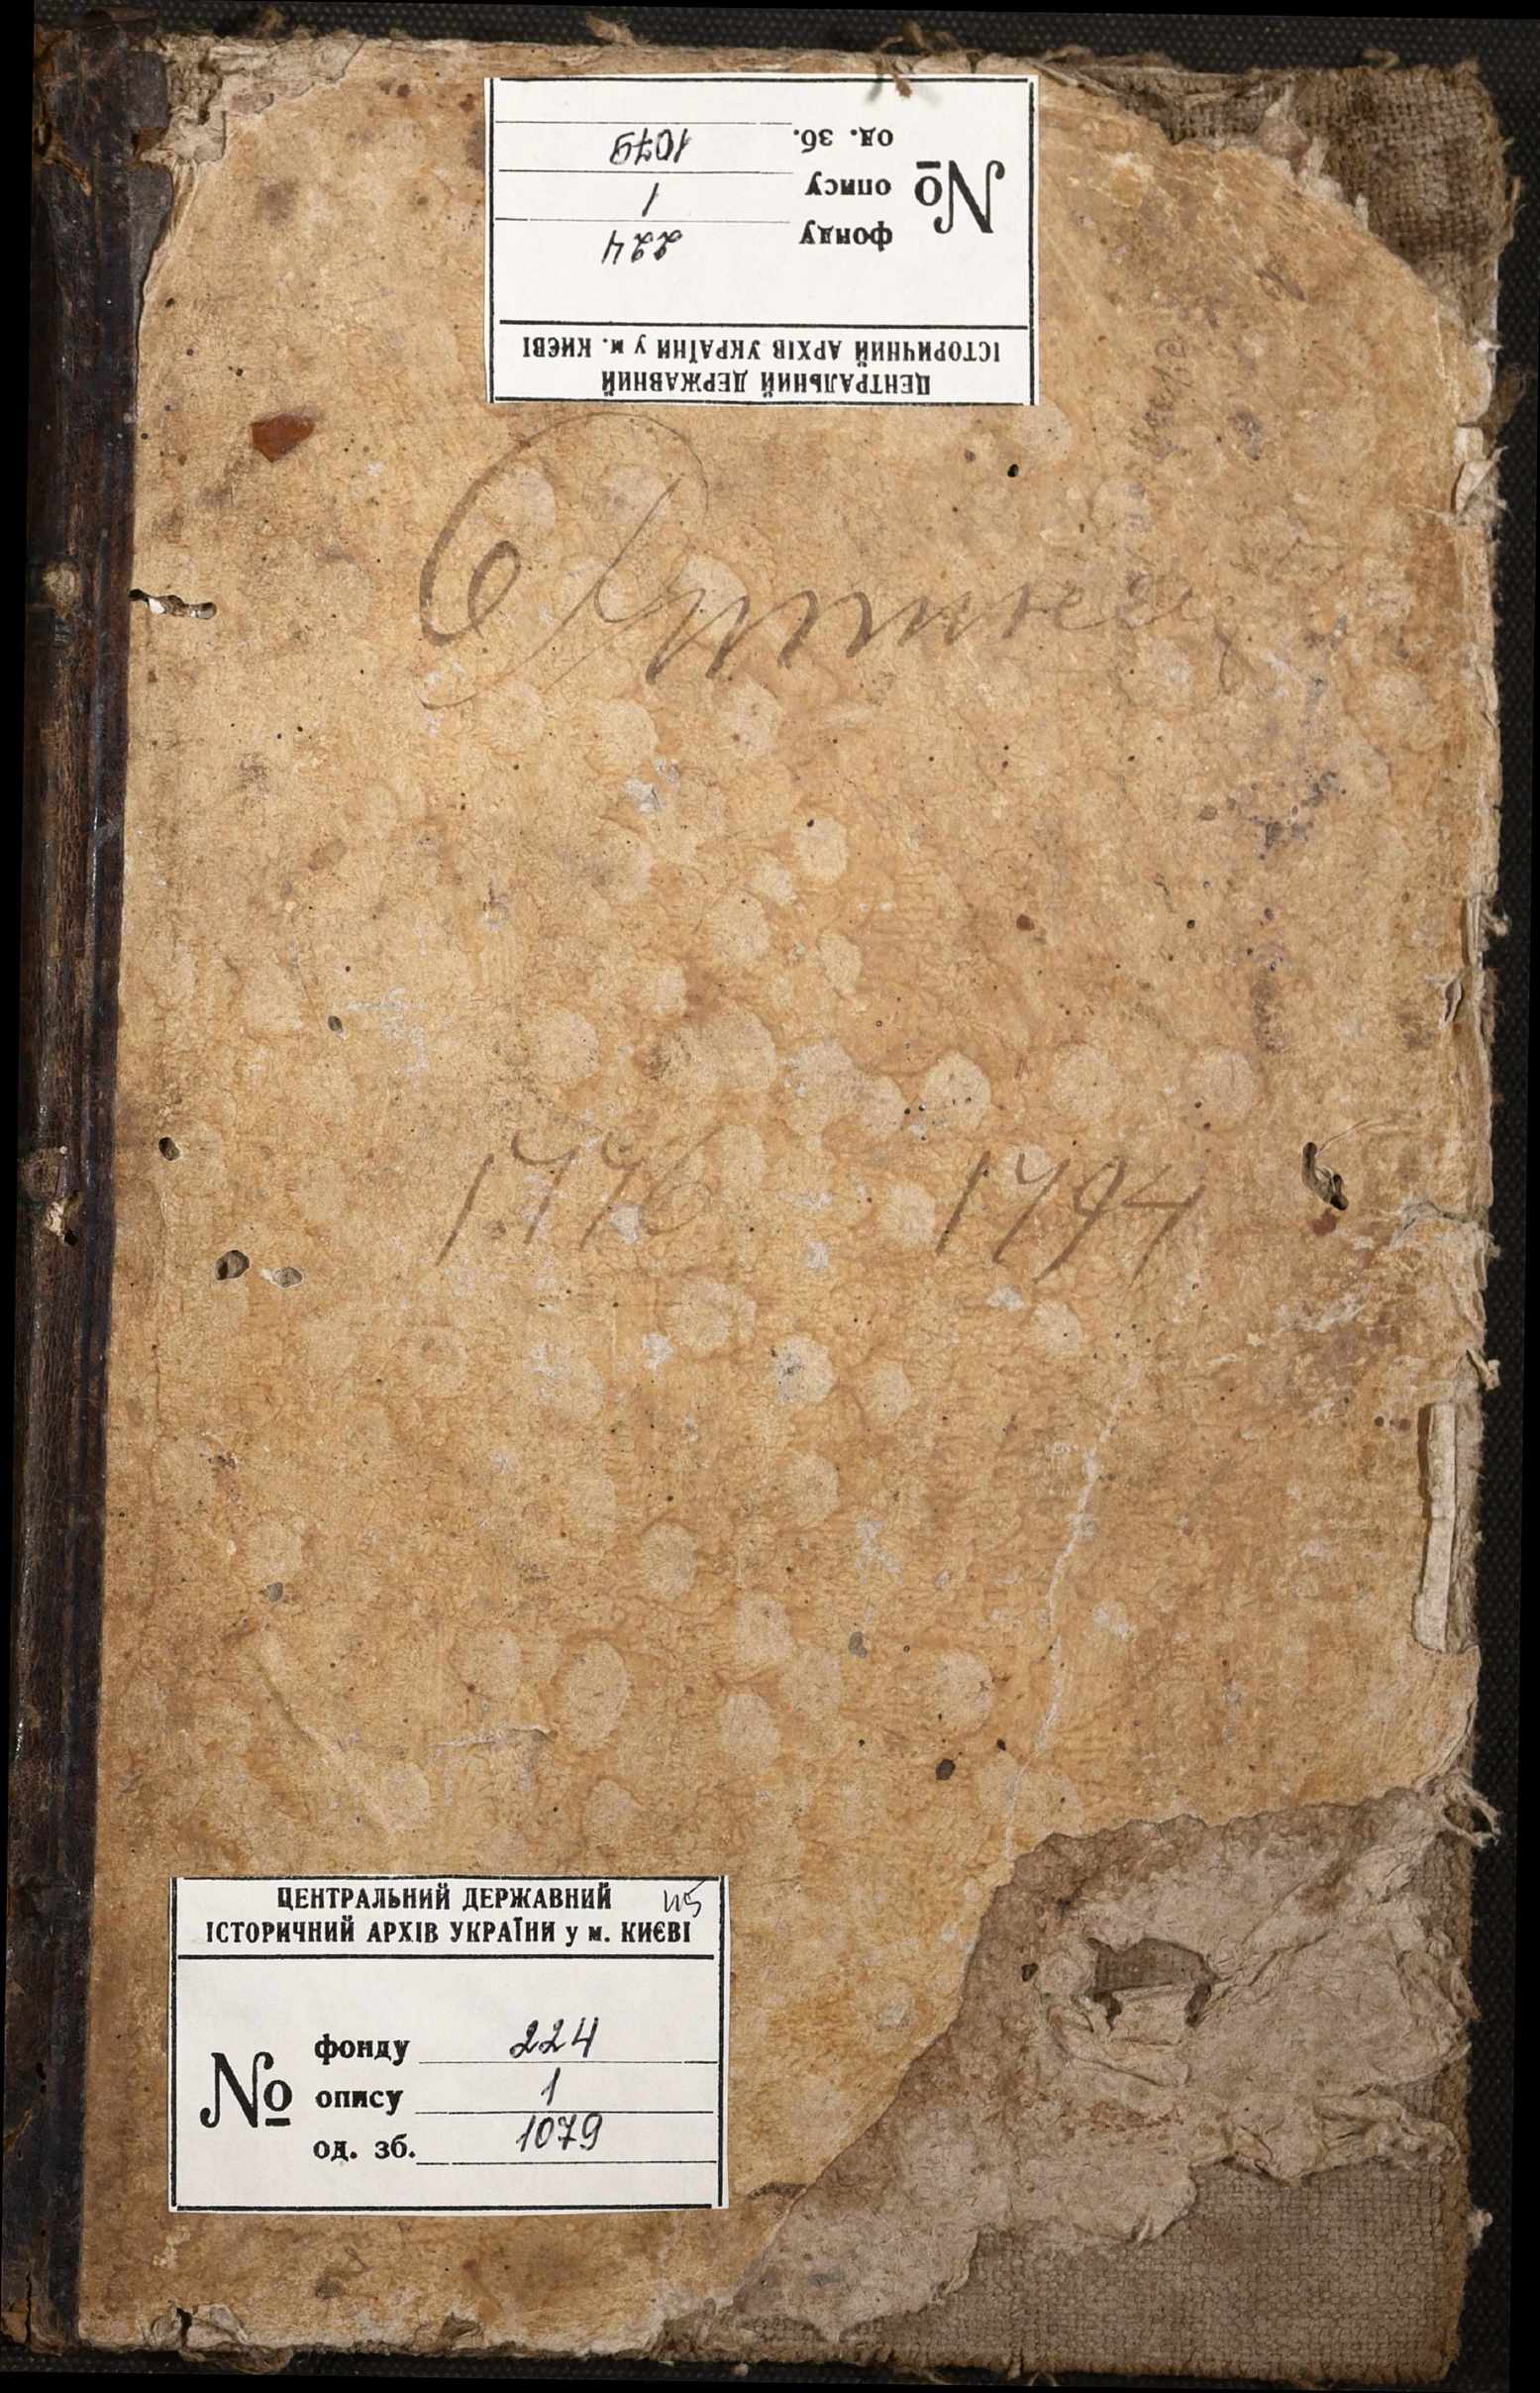 од. зб. 1079
№ опису 1
фонду 224
ІСТОРИЧНИЙ АРХІВ УКРАЇНИ у м. КИЄВІ
ЦЕНТРАЛЬНИЙ ДЕРЖАВНИЙ
1776 1794
ЦЕНТРАЛЬНИЙ ДЕРЖАВНИЙ
ІСТОРИЧНИЙ АРХІВ УКРАЇНИ у м. КИЄВІ
фонду 224
№ опису 1
од. зб. 1079